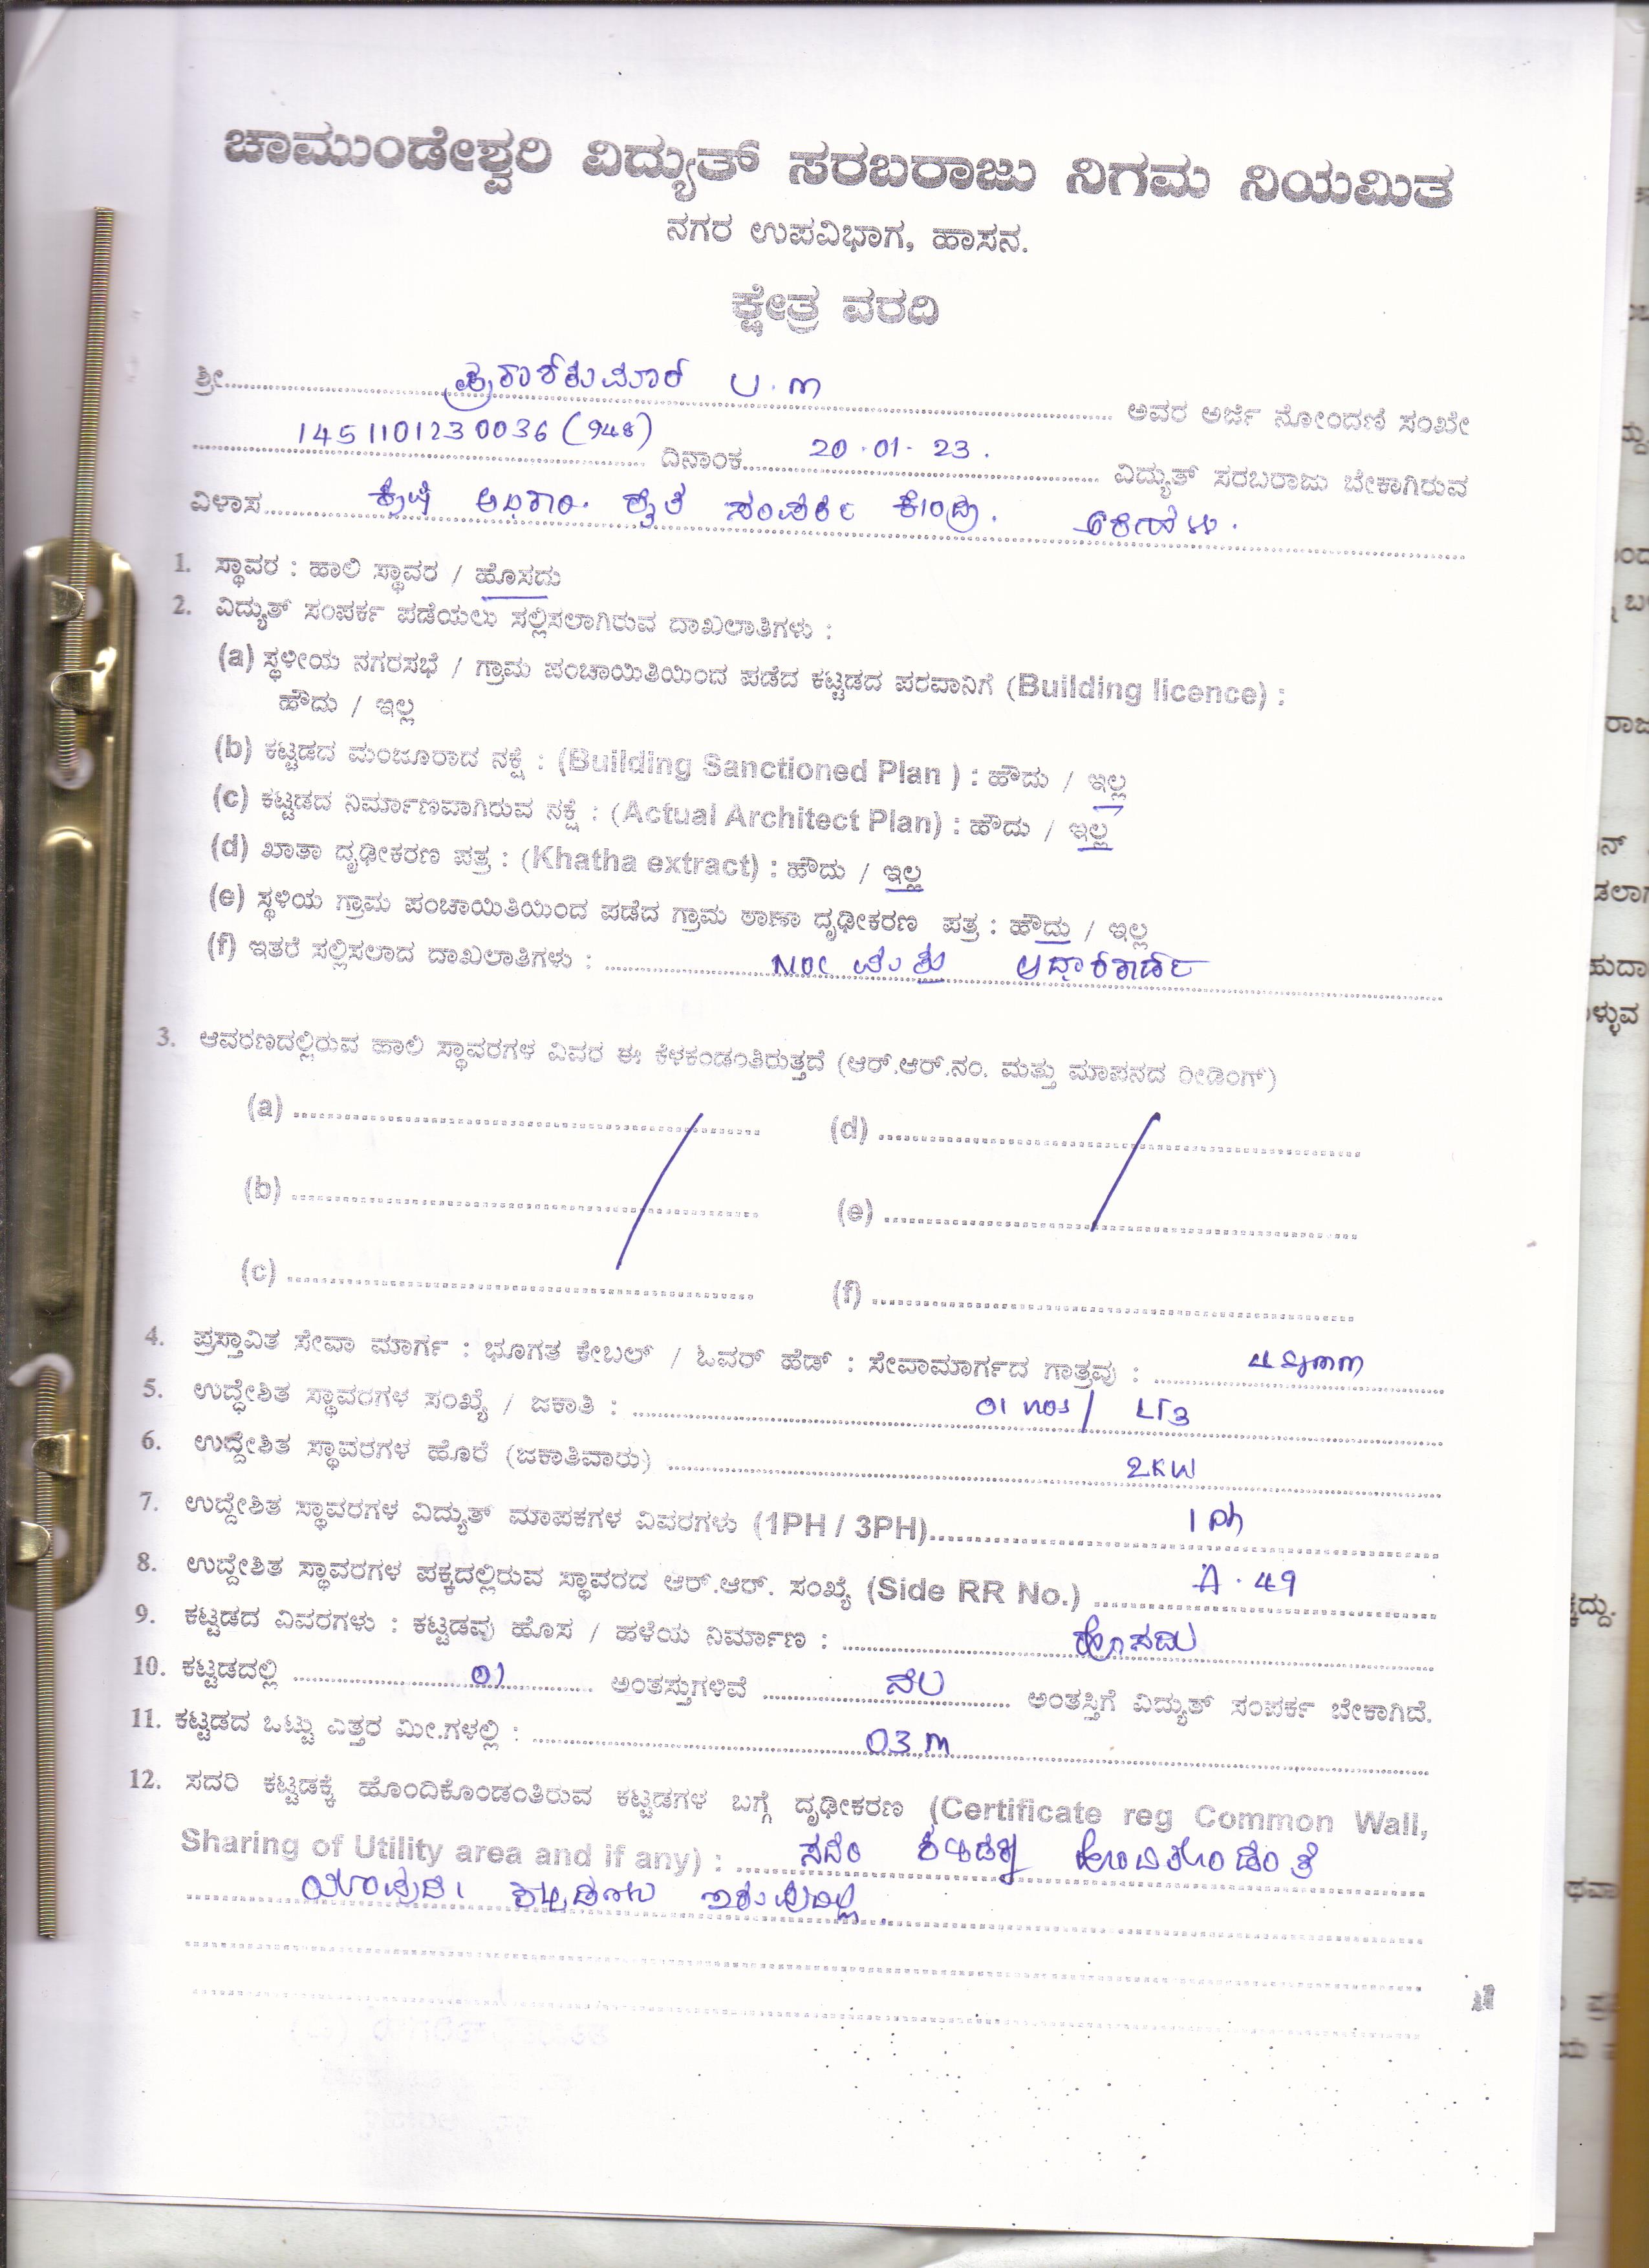 ಚಾಮುಂಡೇಶ್ವರಿ ವಿದ್ಯುತ್ ಸರಬರಾಜು ನಿಗಮ ನಿಯಮಿತ
ನಗರ ಉಪವಿಭಾಗ, ಹಾಸನ.
ಕ್ಷೇತ್ರ ವರದಿ
ಶ್ರೀ.......... ಪ್ರಕಾಶಕುಮಾರ U.M .......... ಅವರ ಅರ್ಜಿ ನೋಂದಣಿ ಸಂಖ್ಯೇ
1451101230036 (948) ದಿನಾಂಕ.......... 20.01.23. .......... ವಿದ್ಯುತ್ ಸರಬರಾಜು ಬೇಕಾಗಿರುವ
ವಿಳಾಸ.......... ಕೃಷಿ ಅಧಿಕಾರಿ. ರೈತ ಸಂಪರ್ಕ ಕೇಂದ್ರ.
1. ಸ್ಥಾವರ : ಹಾಲಿ ಸ್ಥಾವರ / ಹೊಸದು
2. ವಿದ್ಯುತ್ ಸಂಪರ್ಕ ಪಡೆಯಲು ಸಲ್ಲಿಸಲಾಗಿರುವ ದಾಖಲಾತಿಗಳು :
(a) ಸ್ಥಳೀಯ ನಗರಸಭೆ / ಗ್ರಾಮ ಪಂಚಾಯಿತಿಯಿಂದ ಪಡೆದ ಕಟ್ಟಡದ ಪರವಾನಿಗೆ (Building licence) :
ಹೌದು / ಇಲ್ಲ
(b) ಕಟ್ಟಡದ ಮಂಜೂರಾದ ನಕ್ಷೆ : (Building Sanctioned Plan ) : ಹೌದು / ಇಲ್ಲ
(c) ಕಟ್ಟಡದ ನಿರ್ಮಾಣವಾಗಿರುವ ನಕ್ಷೆ : (Actual Architect Plan) : ಹೌದು / ಇಲ್ಲ
(d) ಖಾತಾ ದೃಢೀಕರಣ ಪತ್ರ : (Khatha extract) : ಹೌದು / ಇಲ್ಲ
(e) ಸ್ಥಳಿಯ ಗ್ರಾಮ ಪಂಚಾಯಿತಿಯಿಂದ ಪಡೆದ ಗ್ರಾಮ ಠಾಣಾ ದೃಢೀಕರಣ ಪತ್ರ : ಹೌದು / ಇಲ್ಲ
(f) ಇತರೆ ಸಲ್ಲಿಸಲಾದ ದಾಖಲಾತಿಗಳು : .......... NOC ಮತ್ತು ಆಧಾರಕಾರ್ಡ್
3. ಆವರಣದಲ್ಲಿರುವ ಹಾಲಿ ಸ್ಥಾವರಗಳ ವಿವರ ಈ ಕೆಳಕಂಡಂತಿರುತ್ತದೆ (ಆರ್.ಆರ್.ನಂ. ಮತ್ತು ಮಾಪನದ ರೀಡಿಂಗ್)
(a) .......... (d) ..........
(b) .......... (e) ..........
(c) .......... (f) ..........
4. ಪ್ರಸ್ತಾವಿತ ಸೇವಾ ಮಾರ್ಗ : ಭೂಗತ ಕೇಬಲ್ / ಓವರ್ ಹೆಡ್ : ಸೇವಾಮಾರ್ಗದ ಗಾತ್ರವು : ..........
5. ಉದ್ದೇಶಿತ ಸ್ಥಾವರಗಳ ಸಂಖ್ಯೆ / ಜಕಾತಿ : .......... 01 nos / LT3
6. ಉದ್ದೇಶಿತ ಸ್ಥಾವರಗಳ ಹೊರೆ (ಜಕಾತಿವಾರು) .......... 2KW
7. ಉದ್ದೇಶಿತ ಸ್ಥಾವರಗಳ ವಿದ್ಯುತ್ ಮಾಪಕಗಳ ವಿವರಗಳು (1PH / 3PH).......... 1 Ph
8. ಉದ್ದೇಶಿತ ಸ್ಥಾವರಗಳ ಪಕ್ಕದಲ್ಲಿರುವ ಸ್ಥಾವರದ ಆರ್.ಆರ್. ಸಂಖ್ಯೆ (Side RR No.) .......... A.49
9. ಕಟ್ಟಡದ ವಿವರಗಳು : ಕಟ್ಟಡವು ಹೊಸ / ಹಳೆಯ ನಿರ್ಮಾಣ : .......... ಹೊಸದು
10. ಕಟ್ಟಡದಲ್ಲಿ .......... 01 .......... ಅಂತಸ್ತುಗಳಿವೆ .......... ನೆಲ .......... ಅಂತಸ್ತಿಗೆ ವಿದ್ಯುತ್ ಸಂಪರ್ಕ ಬೇಕಾಗಿದೆ.
11. ಕಟ್ಟಡದ ಒಟ್ಟು ಎತ್ತರ ಮೀ.ಗಳಲ್ಲಿ : .......... 03 m
12. ಸದರಿ ಕಟ್ಟಡಕ್ಕೆ ಹೊಂದಿಕೊಂಡಂತಿರುವ ಕಟ್ಟಡಗಳ ಬಗ್ಗೆ ದೃಢೀಕರಣ (Certificate reg Common Wall,
Sharing of Utility area and if any) : .......... ಸದರಿ ಕಟ್ಟಡಕ್ಕೆ ಹೊಂದಿಕೊಂಡಂತೆ
ಯಾವುದೇ ಕಟ್ಟಡಗಳು ಇರುವುದಿಲ್ಲ.